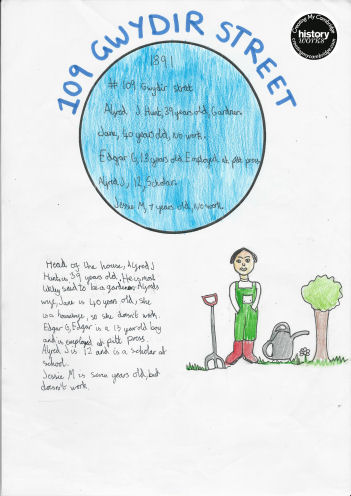 109 GWYDIR STREET
Creating My Cambridge
history
works
creatingmycambridge.com
1891
# 109 Gwydir street
Alfred J Hunt, 39 years old, Gardner.
Jane, 40 years old, No work.
Edgar G, 13 years old Employed at pitt press.
Alfred J, 12, Scholar.
Jessie M, 7 years old, No work.
Head of the house, Alfred J
Hunt is 39 years old, He is most
likely said to be a gardener. Alfreds
wife, Jane is 40 years old, she
is a housewife, so she doesn't work.
Edgar G, Edgar is a 13 year old boy
and is employed at pitt press.
Alfred J is 12 and is a scholar at
school.
Jessie M is seven years old, but
doesn't work.